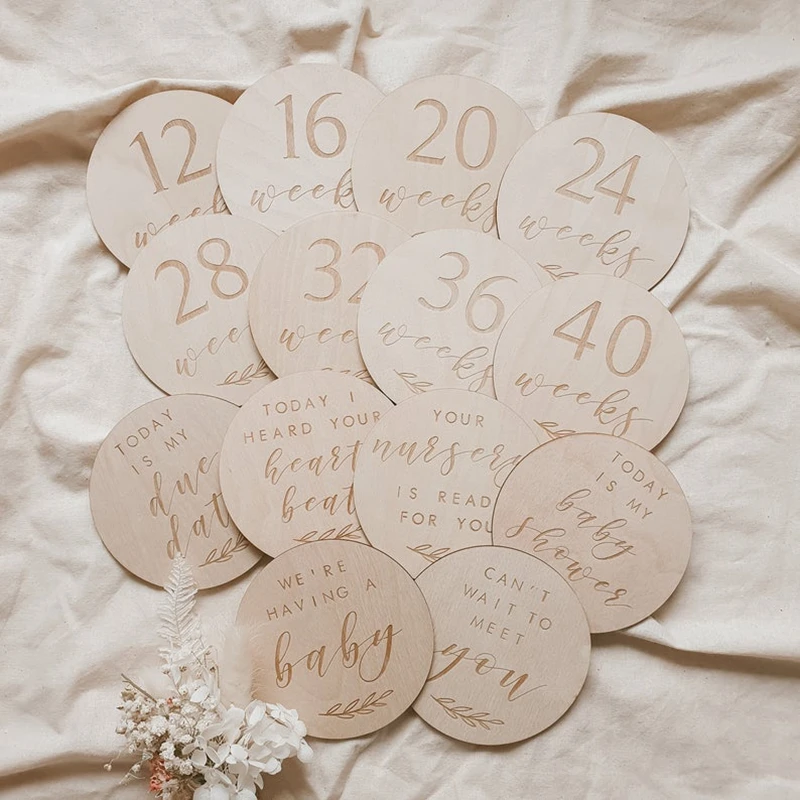 12
week
16
week
20
weeks
24
weeks
28
wee
32
wee
36
weeks
40
weeks
TODAY
IS MY
due
dat
TODAY I
HEARD YOUR
heart
beat
YOUR
nursery
IS READ
FOR YOU
TODAY
IS MY
baby
shower
WE'RE
HAVING A
baby
CAN'T
WAIT TO
MEET
you